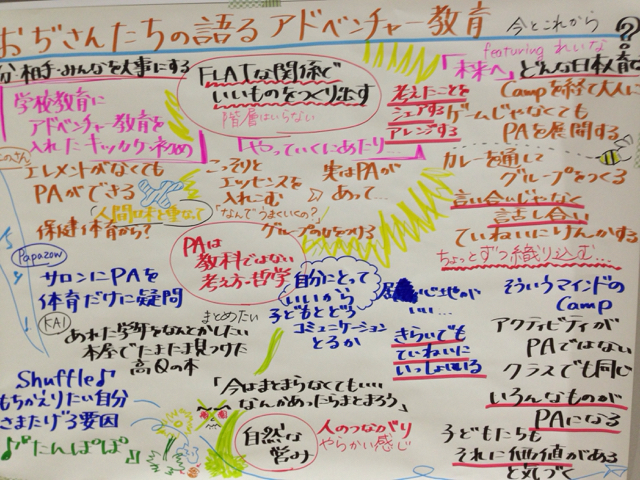 おぢさんたちの語る アドベンチャー教育
今とこれから
?
相手・みんなを大事にする
FLATな関係で
いいものをつくり出す
階層はいらない
featuring れいな
「未来へ」どんな日本人育
学校教育に
アドベンチャー教育を
入れたキッカケ・ねらい
「やっていくにあたり」
考えたことを
シェアする
アレンジする
Campを経て大人に
ゲームじゃなくても
PAを展開する
エレメントがなくても
PAができる
人間は木を重ねて
保健体育から?
こっそりと
エッセンスを
入れこむ
「なんでうまくいくの?」
実はPAが
あって…
グループのひをつくる
カレーを通して
グループをつくる
言い合いじゃなく
話し合い
ていねいにけんかする
ちょっとずつ織り込む…
Papazow
サロンにPAを
体育だけに疑問
PAは
教科ではない
考え方・哲学
自分にとって
いいから
子どもとどう
コミュニケーション
とるか
居心地が
いい…
きらいでも
ていねいに
いっしょにいる
そういうマインドの
Camp
アクティビティが
PAではない
クラスでも同じ
いろんなものが
PAになる
子どもたちも
それに価値がある
と気づく
KAI
まとめたい
あれた学年をなんとかしたい
本屋でたまたま見つけた
高Qの本
Shuffle♪
もちかえりたい自分
さまたげる要因
♪"たんぽぽ"
「今はまとまらなくても…
なんかあったらまとまろう」
自然な
営み
人のつながり
やらかい感じ